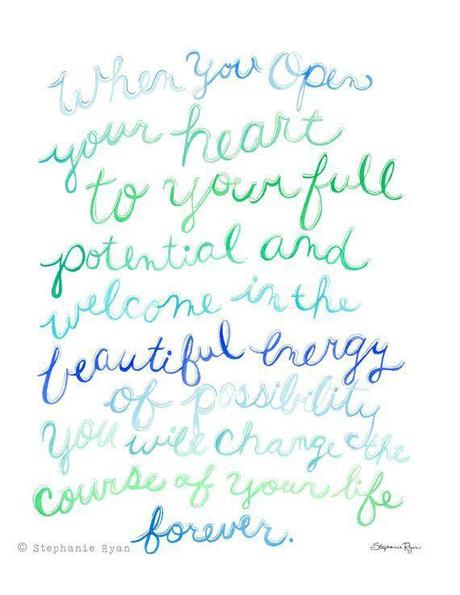 When You Open
your heart
to your full
potential and
welcome in the
beautiful energy
of possibility
You will change the
course of your life
forever.
© Stephanie Ryan
Stephanie Ryan